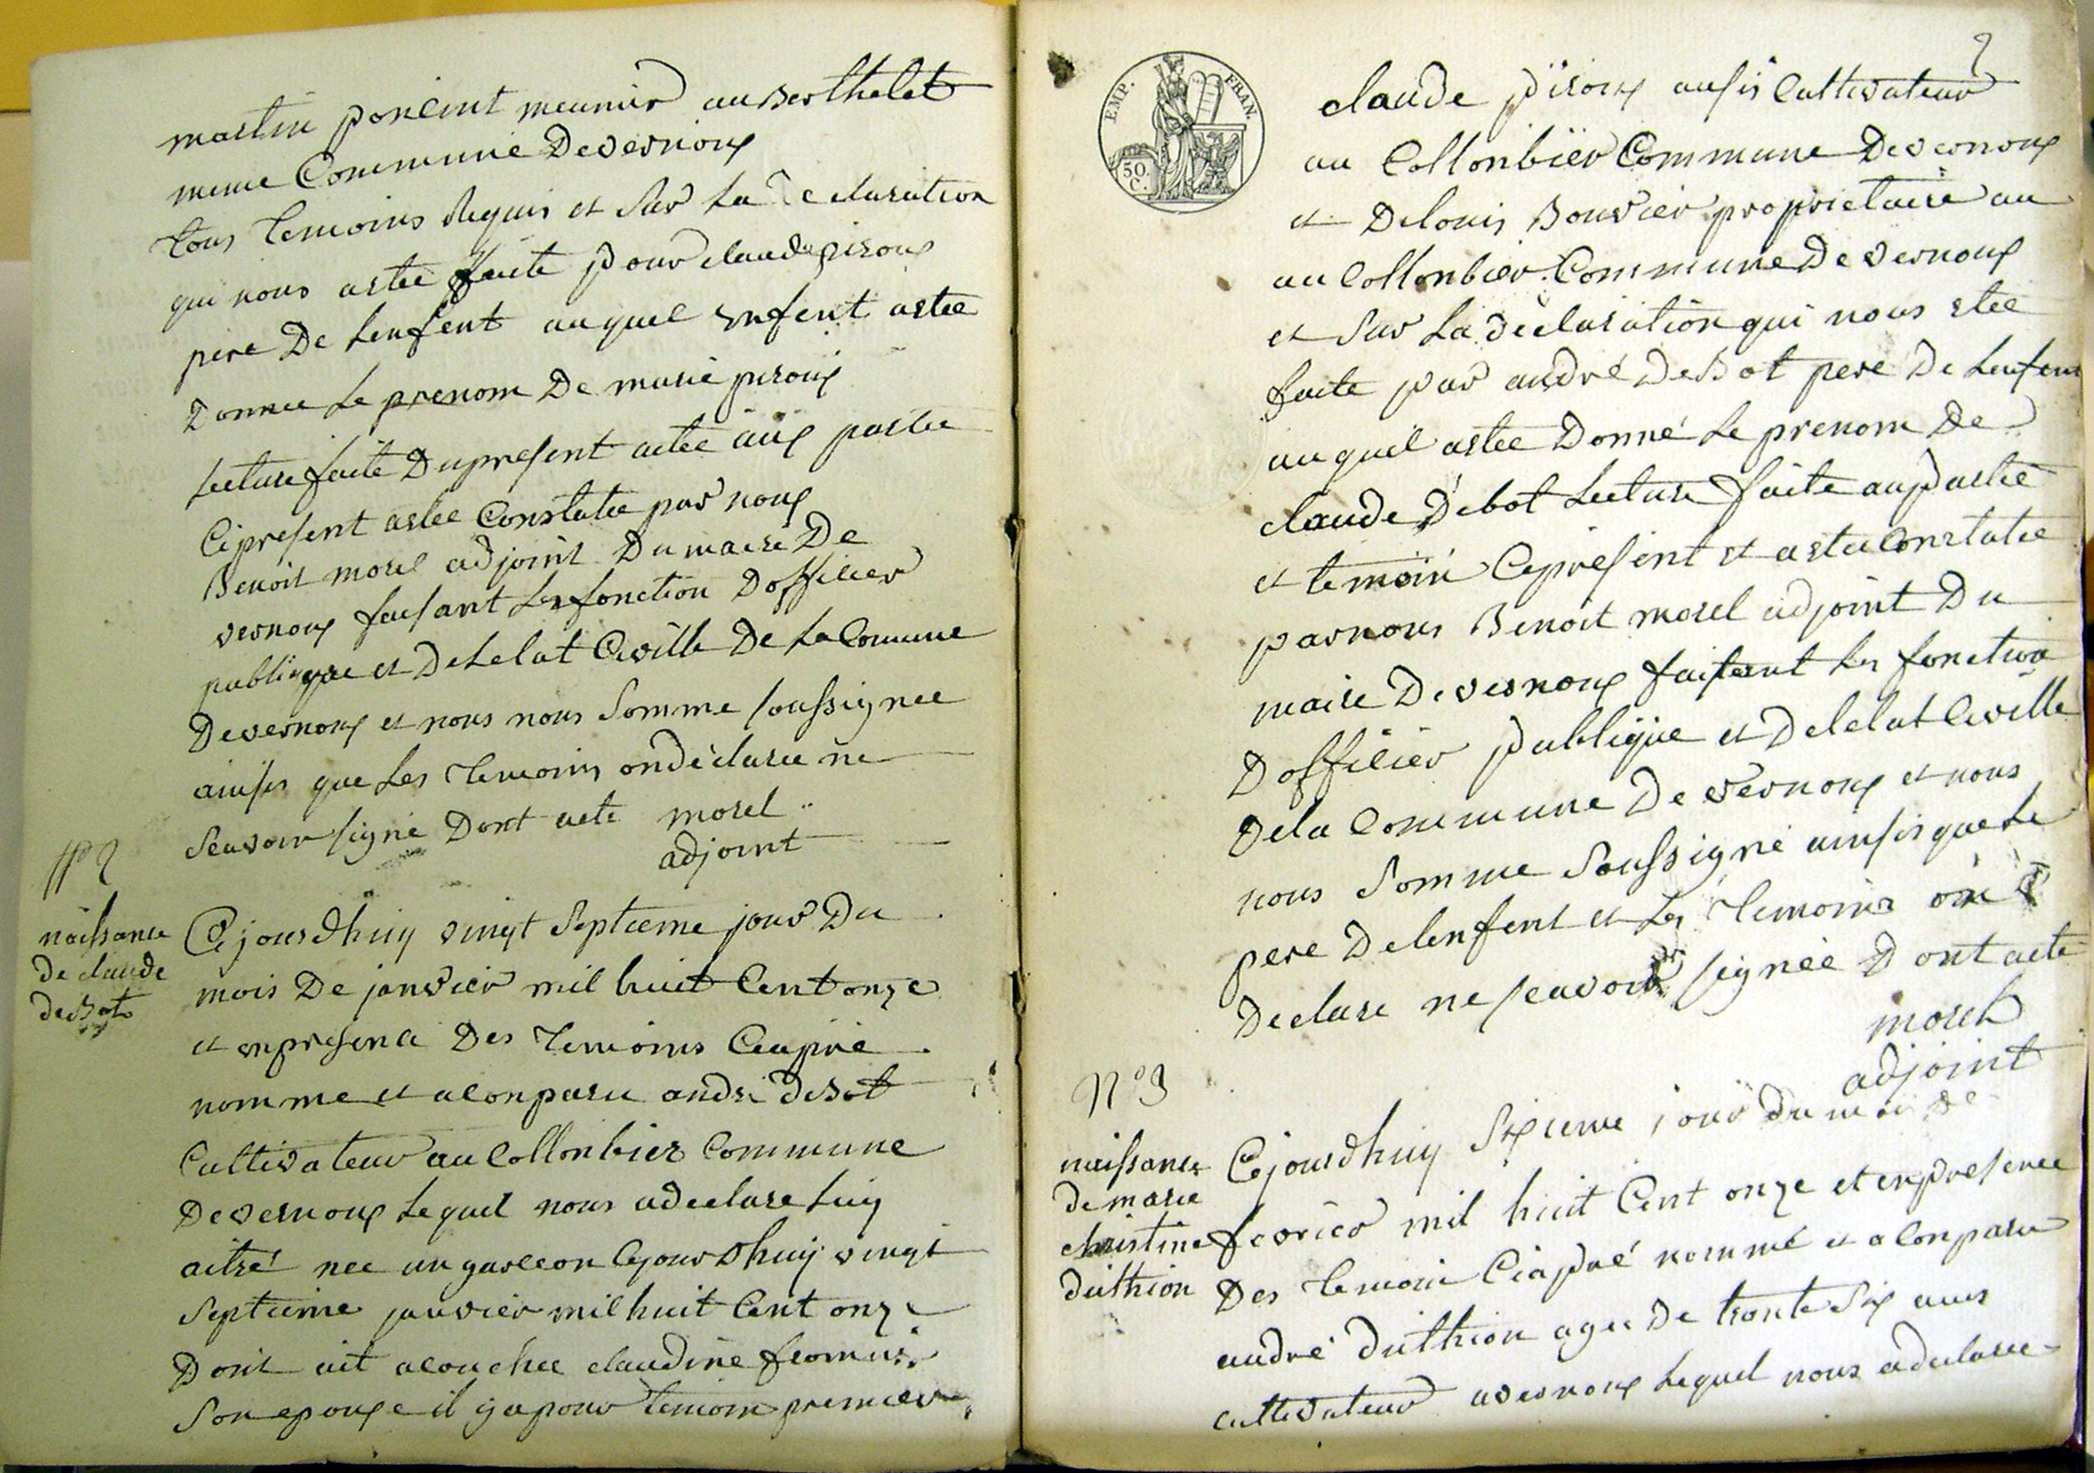 martin poncint meunier au Berthelet
meme Commune De vernoux
tous temoins Requis et Sur La Declaration
qui nous astee faite pour claude piroux
pere De Lenfent auquel enfent astee
Donnee Le prenom De marie piroux
Lecture faite Dupresent actee aux partie
Cipresent astee Constatee par nous
Benoit morel adjoint Du maire De
vernoux faisant Les fonction Dofficier
publique et De Letat Civille De La Comune
Devernoux et nous nous Somme soussignee
ainsis que Les Temoins ondeclaree ne
Scavoir signe Dont acte morel
adjoint
No 2
naissance
de claude
deBot
Cejourdhuy vingt Septieme jour Du
mois De janvier mil huit Cent onze
et enpresence Des Temoins Ciapre
nomme et aconparu andre deBot
Cultivateur au Collonbier Commune
Devernoux Lequel nous adeclare Luy
aitre nee un garcon Cejour Dhuy vingt
Septieme janvier mil huit Cent onze
Dont ait acouchee claudine
Son epouse il ya pour temoin premier
2
EMP. FRAN.
50. C.
claude piroux ausis Cultivateur
au Collonbier Commune Devernoux
et Delouis Bouvier proprietaire au
au Collonbier Commune De vernoux
et Sur La declaration qui nous etee
faite par andré DeBot pere De Lenfent
auquel astee Donné Le prenom De
claude Debot Lecture faite aupartie
et temoin Cepresent et astee Constatee
parnous Benoit morel adjoint Du
maire Devernoux faisant Les fonction
Dofficier publique et Deletat Civille
Dela Commune De vernoux et nous
nous Somme Soussigné ainsis que Le
pere Delenfent et Les Temoins on
Declare ne scavoir signée Dont acte
morel
adjoint
No 3
naissance
de marie
christine
duthion
Cejourdhuy Sixieme jour Du moi De
fevrier mil huit Cent onze et enpresence
Des Temoin Ciapré nommé et aconparu
andré duthion agee De trente Six ans
cultivateur avernoux Lequel nous adeclaree